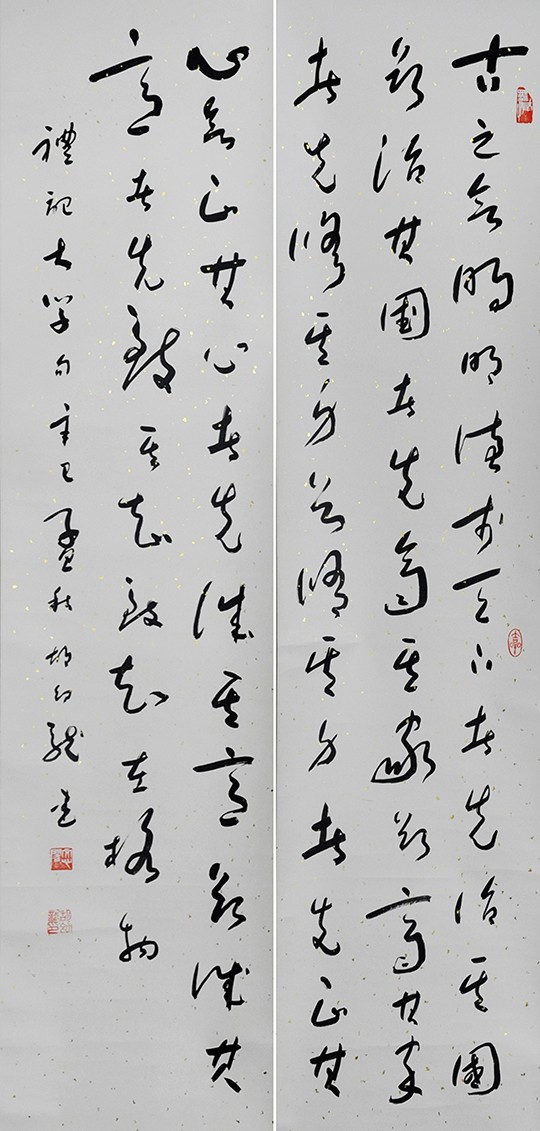 古之欲明明德於天下者先治其國
欲治其國者先齊其家欲齊其家
者先修其身欲修其身者先正其
心欲正其心者先誠其意欲誠其
意者先致其知致知在格物
禮記大學句辛巳孟秋胡龍書